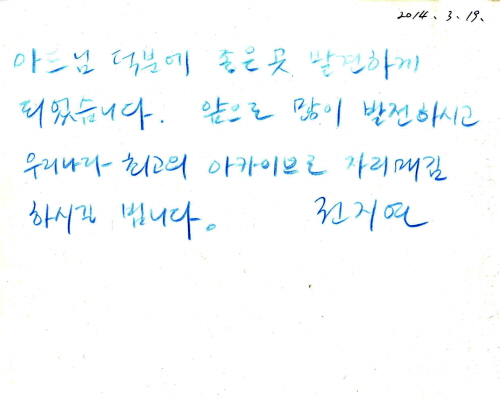 2014. 3. 19.
아드님 덕분에 좋은곳 발견하게
되었습니다. 앞으로 많이 발전하시고
우리나라 최고의 아카이브로 자리매김
하시길 빕니다. 전지연